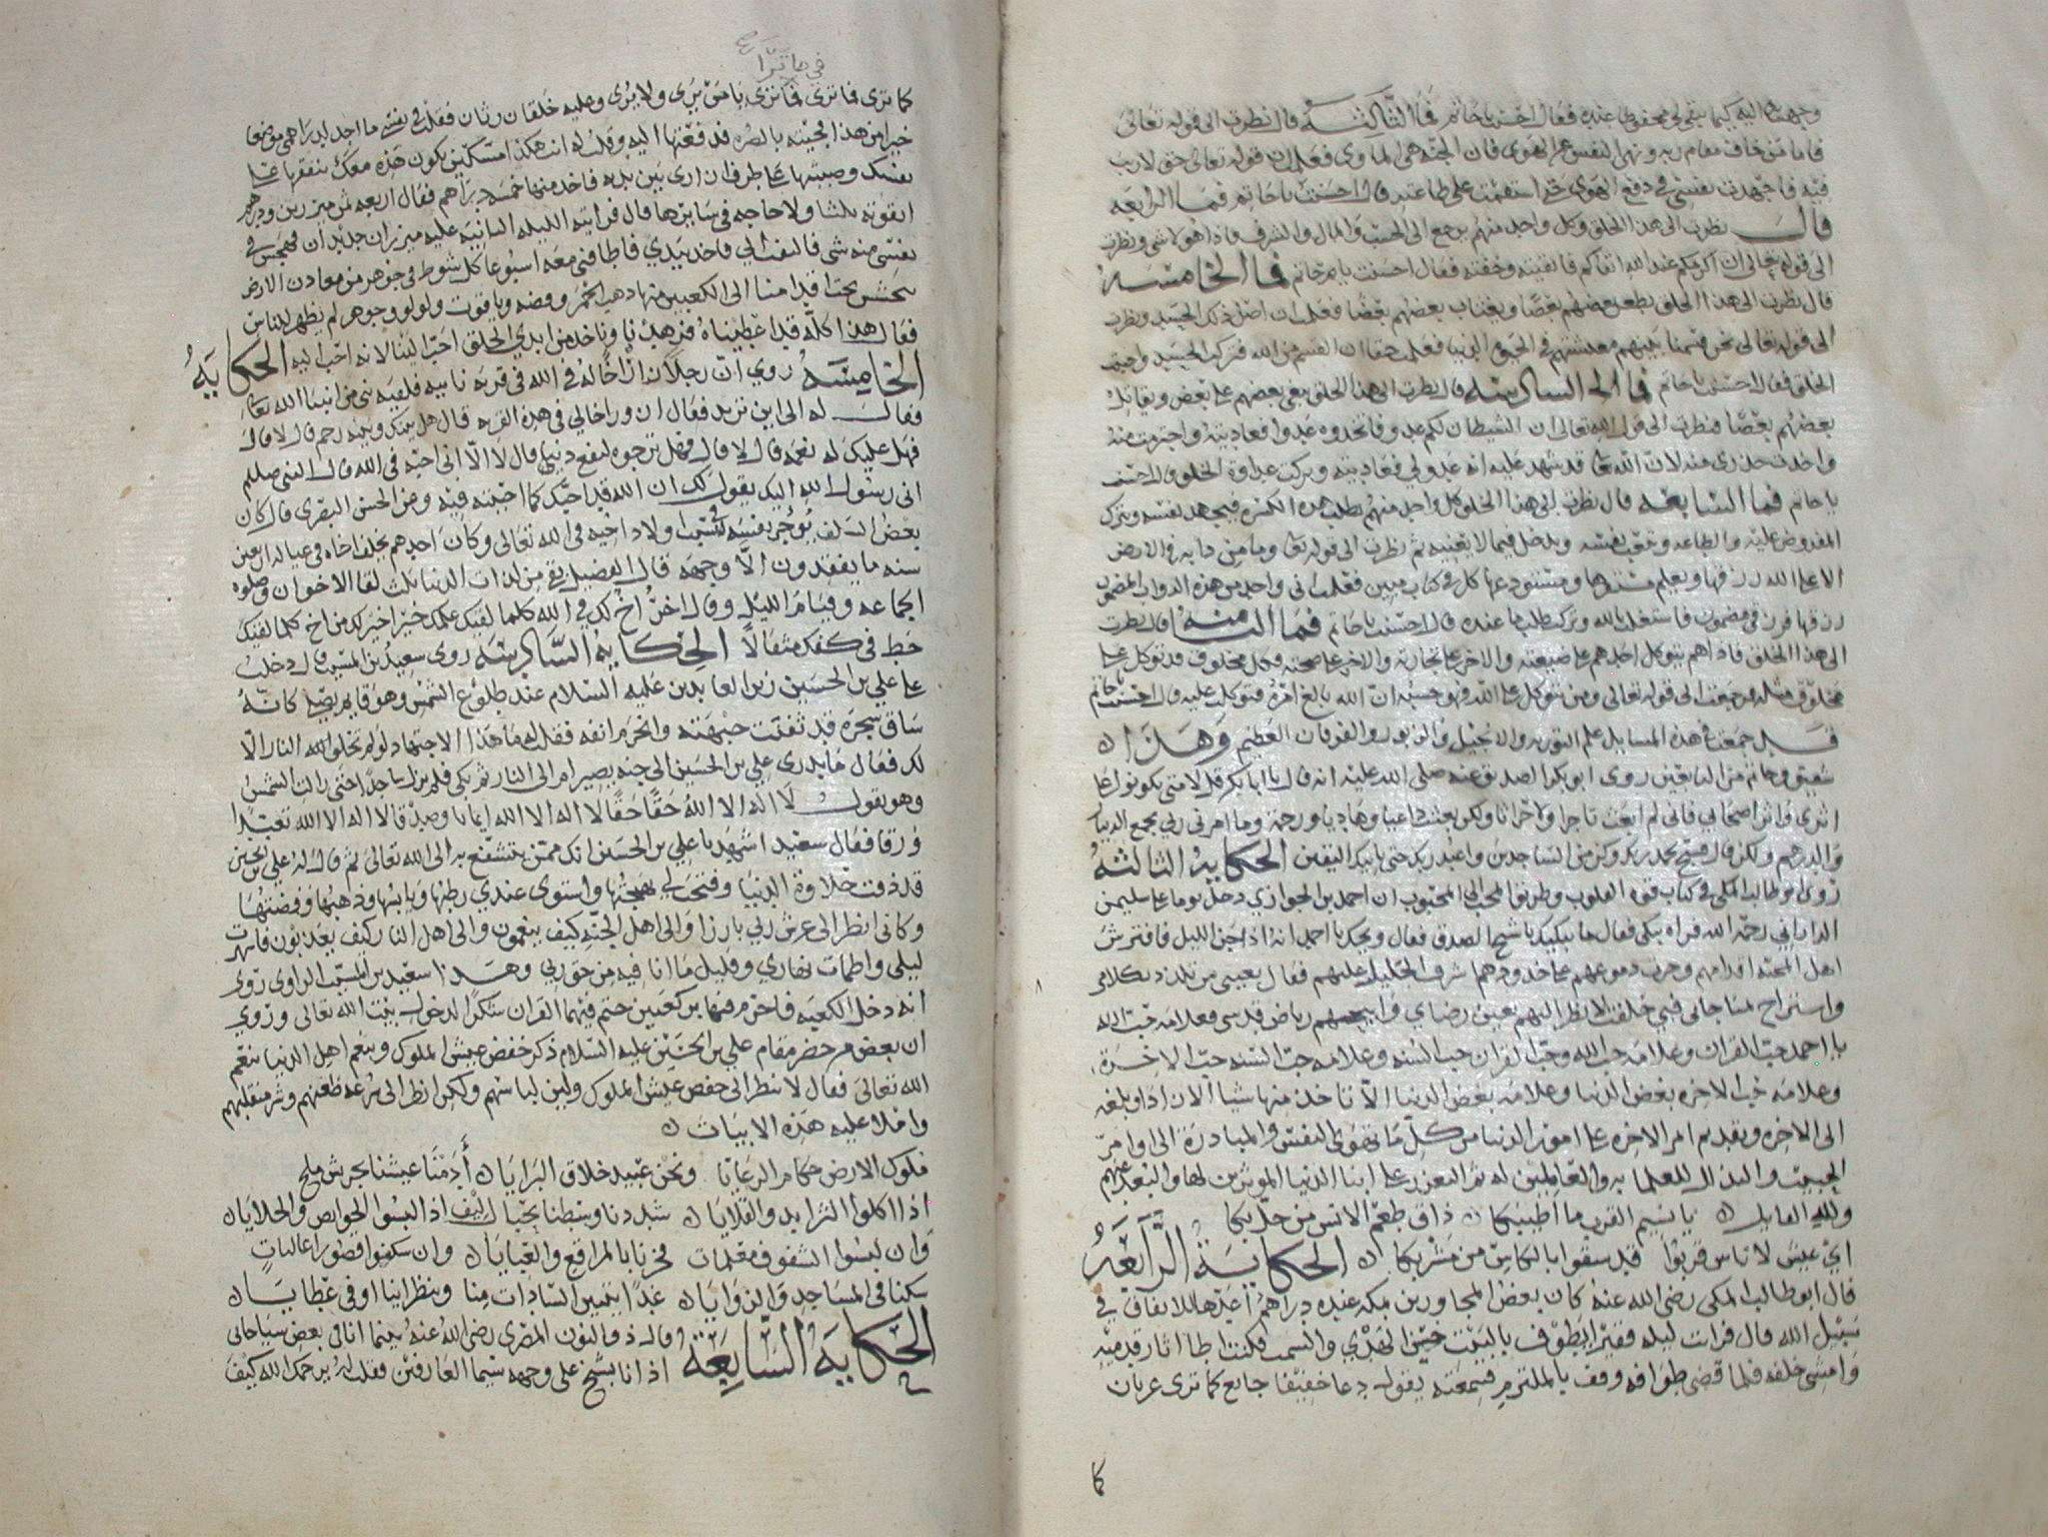 وجهته اليه كيما يبقى لي محفوظا عنده فقال احسنت يا حاتم فما الثالثه قال نظرت الى قوله تعالى
فاما من خاف مقام ربه ونهى النفس عن الهوى فان الجنه هي الماوى فعلمت ان قوله تعالى حق لا ريب
فيه فاجهدت نفسي في دفع الهوى حتى استقمت على طاعته قال احسنت يا حاتم فما الرابعه
قال نظرت الى هذا الخلق وكل واحد منهم يرجع الى الحسب والمال والشرف فاذا هو لا شي ونظرت
الى قوله تعالى ان اكرمكم عند الله اتقاكم فاتقيته وخفته فقال احسنت يا حاتم فما الخامسه
قال نظرت الى هذا الخلق يطعن بعضهم بعضا ويغتاب بعضهم بعضا فعلمت ان اصل ذلك الحسد ونظرت
الى قوله تعالى نحن قسمنا بينهم معيشتهم في الحيوه الدنيا فعلمت حقا ان القسم من الله فتركت الحسد واحببت
الخلق فقال احسنت يا حاتم فما السادسه قال نظرت الى هذا الخلق يبغي بعضهم على بعض ويقاتل
بعضهم بعضا فنظرت الى قول الله تعالى ان الشيطان لكم عدو فاتخذوه عدوا فعاديته واحترست منه
واخذت حذري منه لان الله تعا قد شهد عليه انه عدو لي فعاديته وتركت عداوة الخلق قال احسنت
يا حاتم فما السابعه قال نظرت الى هذا الخلق كل واحد منهم يطلب هذه الكسره فيجهد نفسه ويترك
المفروض عليه والطاعه ويتعب نفسه ويدخل فيما لا يعنيه ثم نظرت الى قوله تعا وما من دابه في الارض
الا على الله رزقها ويعلم مستقرها ومستودعها كل في كتاب مبين فعلمت اني واحد من هذه الدواب المضمون
رزقها فرزقي مضمون فاشتغلت بالله وتركت طلب ما عنده قال احسنت يا حاتم فما الثامنه قال نظرت
الى هذا الخلق فاذا هم يتوكل احدهم على ضيعته والاخر على تجارته والاخر على صحته وكل مخلوق قد توكل على
مخلوق مثله فرجعت الى قوله تعالى ومن يتوكل على الله فهو حسبه ان الله بالغ امره فتوكلت عليه قال احسنت يا حاتم
قد جمعت في هذه المسايل علم التوريه والانجيل والزبور والفرقان العظيم وهذا
شقيق وحاتم من التابعين روى ابو بكر الصديق عنه صلى الله عليه انه قال يا ابا بكر قل لامتي يكونوا على
اثري واثر اصحابي فاني لم ابعث تاجرا ولا حراثا ولكن بعثت داعيا وهاديا ورحمة وما امرني ربي بجمع الدنيا
والدرهم ولكن قال فسبح بحمد ربك وكن من الساجدين واعبد ربك حتى ياتيك اليقين الحكاية الثالثة
روى ابو طالب المكي في كتاب قوت القلوب وطريق المحب الى المحبوب ان احمد بن الحواري دخل يوما على سليمن
الداراني رحمه الله فراه يبكي فقال ما يبكيك يا شيخ الصدق فقال ويحك يا احمد انه اذا جن الليل فافترش
اهل المحبة اقدامهم وجرت دموعهم على خدودهم اشرف الجليل عليهم فقال بعيني من تلذذ بكلامي
واستراح لمناجاتي فبي حلفت لانظر اليهم بعين رضاي رياض قدسي فعلامة حب الله
يا احمد حب القران وعلامة حب الله وحب القران حب السنه وعلامة حب السنه حب الاخرة
وعلامة حب الاخره بغض الدنيا وعلامة بغض الدنيا الا تاخذ منها شيا الا زادا وبلغة
الى الاخره وتقديم امر الاخره على امور الدنيا من كل ما تهوى النفس والمبادرة الى اوامر
الحبيب والتذلل للعلما به والعاملين له ثم التعزز على ابنا الدنيا الموثرين لها والتبعد عنهم
ولله القايل يا نسيم القرب ما اطيبكا ذاق طعم الانس من حل بكا
اي عيش لاناس قربوا قد سقوا بالكاس من مشربكا الحكاية الرابعة
قال ابو طالب المكي رضي الله عنه كان بعض المجاورين بمكه عنده دراهم اعدها للانفاق في
سبيل الله قال فرايت ليله فقيرا يطوف بالبيت حسن الهدي والسمت فكنت اطا اثار قدميه
وامشي خلفه فلما قضى طوافه وقف بالملتزم فسمعته يقول دعا خفيفا جايع كما ترى عريان
كما
في ما ترا
كما ترى فما ترى فما ترى يا من يرى ولا يرى وعليه خلقان رثان فقلت في نفسي ما اجد لدراهمي موضعا
خيرا من هذا فجيته بالصره فدفعتها اليه وقلت له انت هكذا امسك بان يكون هذه معك تنفقها على
نفسك وصببتها على طرف ازاري بين يديه فاخذ منها خمسة دراهم فقال اربعه ثمن ميزرين ودرهم
اتقوته ثلثا ولا حاجه في سايرها قال فرايته الليله الثانيه عليه ميزران جديدان فهجس في
نفسي منه شي فالتفت الي فاخذ بيدي فاطافني معه اسبوعا كل شوط في جوهر من معادن الارض
يتحشحش تحت اقدامنا الى الكعبين منها ذهب احمر وفضه وياقوت ولولو وجوهر لم يظهر للناس
فقال هذا كله قد اعطيناه فزهدنا وناخذ من ايدي الخلق احب الينا لانه احب اليه الحكاية
الخامسه روي ان رجلا زار اخا له في الله في قرية نايية فلقيه نبي من انبيا الله تعالى
فقال له الى اين تريد فقال ازور اخا لي في هذه القريه قال هل بينك وبينه رحم قال لا قال
فهل عليك له نعمه قال لا قال فهل ترجوه لنفع دنيا قال لا الا اني احبه في الله قال النبي صلعم
اني رسول الله اليك يقول لك ان الله قد احبك كما احببته فيه وعن الحسن البصري قال كان
بعض السلف يوجر نفسه في كسب اولاد اخيه في الله تعالى وكان احدهم يخلف اخاه في عياله اربعين
سنه ما يفقدون الا وجهه قال الفضيل بقي من لذات الدنيا ثلث لقا الاخوان وصلوه
الجماعه وقيام الليل وقال اخر اخ لك في الله كلما لقيك علمك خيرا خير لك من اخ كلما لقيك
حط في كفك مثقالا الحكاية السادسه روى سعيد بن المسيب قال دخلت
على علي بن الحسين زين العابدين عليه السلام عند طلوع الشمس وهو قايم يصلي كانه
ساق شجرة قد ثفنت جبهته وانخرم انفه فقلت له ما هذا الاجتهاد لو لم تخلق الله النار الا
لك فقال ما يدري علي بن الحسين الى جنه يصير ام الى النار ثم بكى فلم يزل ساجدا حتى زالت الشمس
وهو يقول لا اله الا الله حقا حقا لا اله الا الله ايمانا وصدقا لا اله الا الله تعبدا
ورقا فقال سعيد اشهد يا علي بن الحسين انك ممن يتشفع به الى الله تعالى ثم قال له علي بن الحسين
قد ذقت حلاوة الدنيا وفتحت لي بهجتها واستوى عندي رطبها ويابسها وذهبها وفضتها
وكاني انظر الى عرش ربي بارزا والى اهل الجنه كيف ينعمون والى اهل النار كيف يعذبون فاسهرت
ليلي واظمات نهاري وقليل ما انا فيه من حق ربي وهذا سعيد بن المسيب الراوي روي
انه دخل الكعبه فاحرم فيها بركعتين ختم فيهما القران شكرا لدخول بيت الله تعالى وروي
ان بعض من حضر مقام علي بن الحسين عليه السلام ذكر خفض عيش الملوك وتنعم اهل الدنيا بنعم
الله تعالى فقال لا تنظر الى خفض عيش الملوك ولين لباسهم ولكن انظر الى سرعة ظعنهم وشر منقلبهم
واملا عليه هذه الابيات
ملوك الارض حكام الرعايا ونحن عبيد خلاق البرايا أدمنا عيشنا بجريش ملح
اذا اكلوا الثرايد والقلايا شددنا وسطنا بحبال ليف اذا لبسوا الخوايص والحلايا
وان لبسوا الشفوف معلمات فخرنا بالمراقع والعبايا وان سكنوا قصورا عاليات
سكنا في المساجد والزوايا غدا يتميز السادات منا وننظر اينا اوفى عطايا
الحكاية السابعة وقال ذو النون المصري رضي الله عنه بينما انا في بعض سياحاتي
اذ انا بشيخ على وجهه سيما العارفين فقلت له يرحمك الله كيف